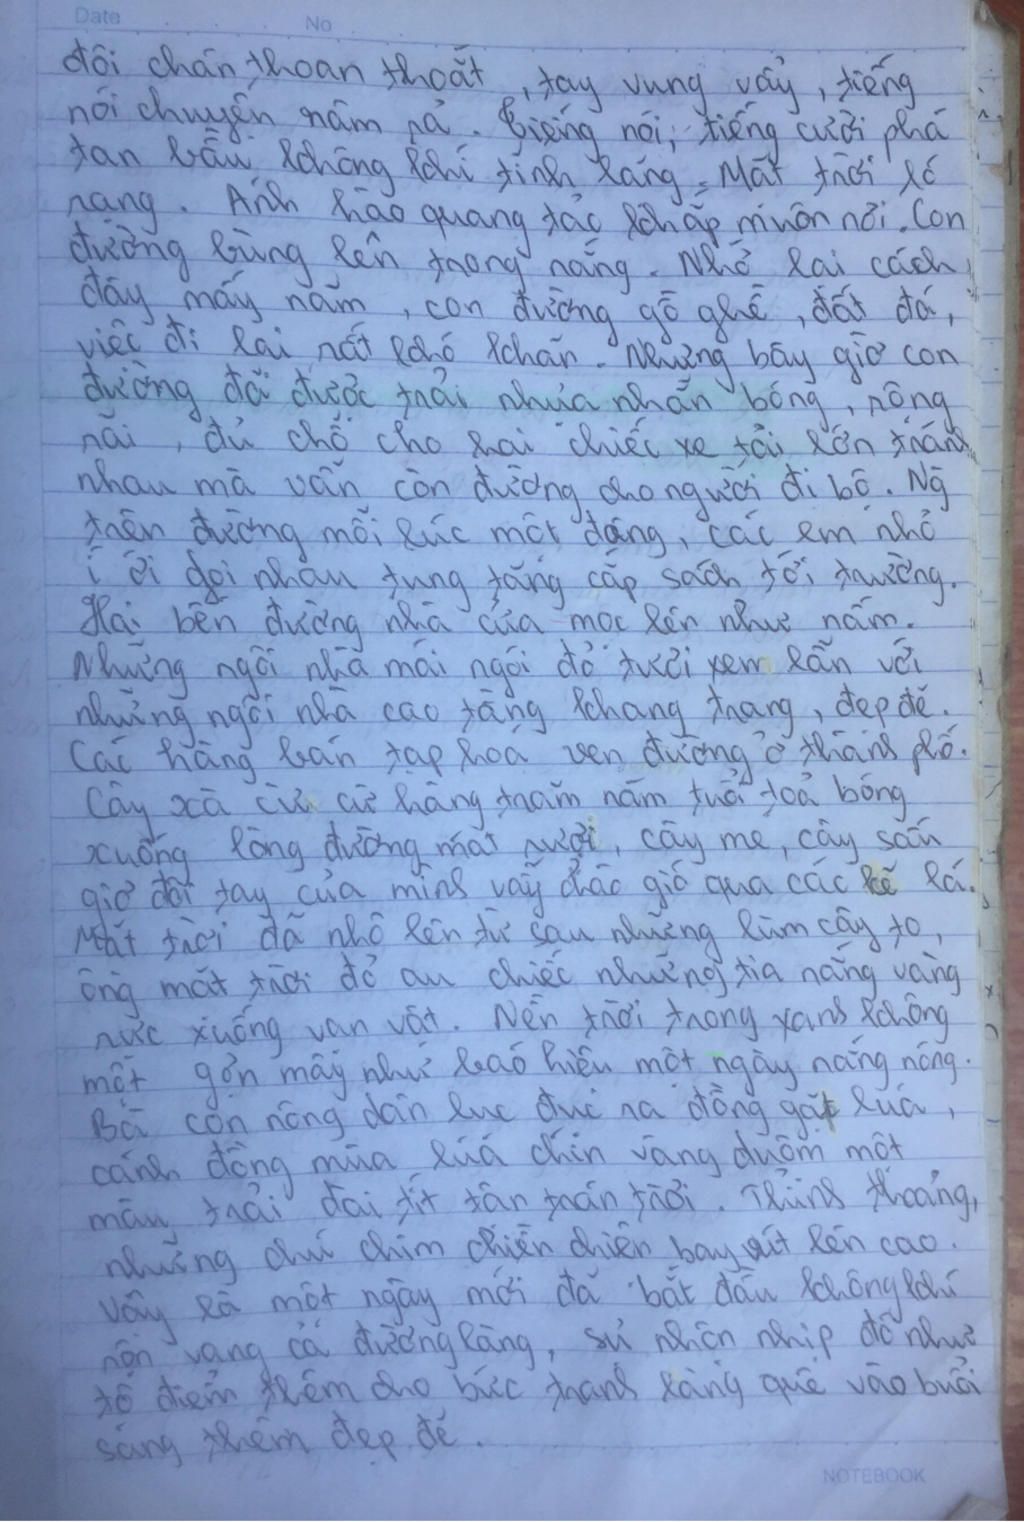 Date No
đôi chân thoan thoắt, tay vung vẩy, tiếng
nói chuyện râm rả. Tiếng nói, tiếng cười phá
tan bầu không khí tĩnh lặng. Mặt trời ló
rạng. Ánh hào quang tảo khắp muôn nơi. Con
đường bừng lên trong nắng. Nhớ lại cách
đây mấy năm, con đường gồ ghề, đất đá,
việc đi lại rất khó khăn. Nhưng bây giờ con
đường đã được trải nhựa nhẵn bóng, rộng
rãi, đủ chỗ cho hai chiếc xe tải lớn tránh
nhau mà vẫn còn đường cho người đi bộ. Ng
trên đường mỗi lúc một đông, các em nhỏ
í ới gọi nhau tung tăng cắp sách tới trường.
Hai bên đường nhà cửa mọc lên như nấm.
Những ngôi nhà mái ngói đỏ tươi xem lẫn với
những ngôi nhà cao tầng khang trang, đẹp đẽ.
Các hàng bán tạp hoá ven đường ở thành phố.
Cây xà cừ cừ hàng trăm năm tuổi toả bóng
xuống lòng đường mát rượi, cây me, cây sấu
giơ đôi tay của mình vẫy chào gió qua các kẽ lá.
Mặt trời đã nhô lên từ sau những lùm cây to,
ông mặt trời đỏ au chiếc những tia nắng vàng
rực xuống vạn vật. Nền trời trong xanh không
một gợn mây như báo hiệu một ngày nắng nóng.
Bà con nông dân lục đục ra đồng gặt lúa,
cánh đồng mùa lúa chín vàng duộm một
màu trải dài tít tận trân trời. Thỉnh thoảng,
những chú chim chiền chiện bay vút lên cao.
Vậy là một ngày mới đã bắt đầu không khí
rộn vang cả đường làng, sự nhộn nhịp đó như
tô điểm thêm cho bức tranh làng quê vào buổi
sáng thêm đẹp đẽ.
NOTEBOOK